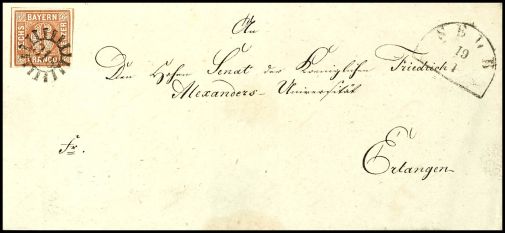 BAYERN
SECHS
FRANCO
SELB
19
1
An
Den Hohen Senat der Koeniglichen Friedrich
Alexanders-Universität
Fr.
Erlangen.